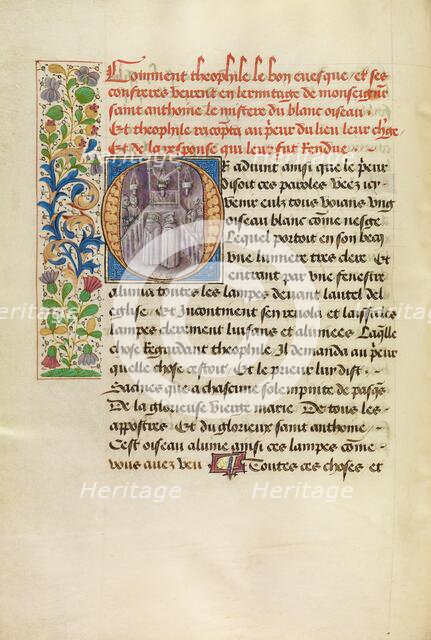 Comment theophile le bon euesque / et ses
confreres veirent en lermitage de monseigneur
saint anthoine le mistere du blanc oiseau /
Et theophile racopta au prieur du lieu leur chge
Et de la response qui leur fut rendue /
Or aduint ainsi que le prieur
disoit ces paroles veez icy
venir eulz tous voians vng
oiseau blanc cõme nesge
Lequel portoit en son becq
vne lumiere tres clere Et
entrant par vne fenestre
aluma toutes les lampes deuant lautel de
eglise / et Incontinent sen reuola et laissa les
lampes clerement luisans et alumees Laq̃lle
chose Regardant theophile Il demanda au prieur
quelle chose cestoit Et le prieur lui dist /
Sachies que a chascune solempnite de pasq̃s
De la glorieuse vierge marie De tous les
appostres Et du glorieux saint anthoine /
Cest oiseau alume ainsi ces lampes cõme
vous auez veu Toutes ces choses et
Heritage Heritage
Heritage
Heritage Heritage